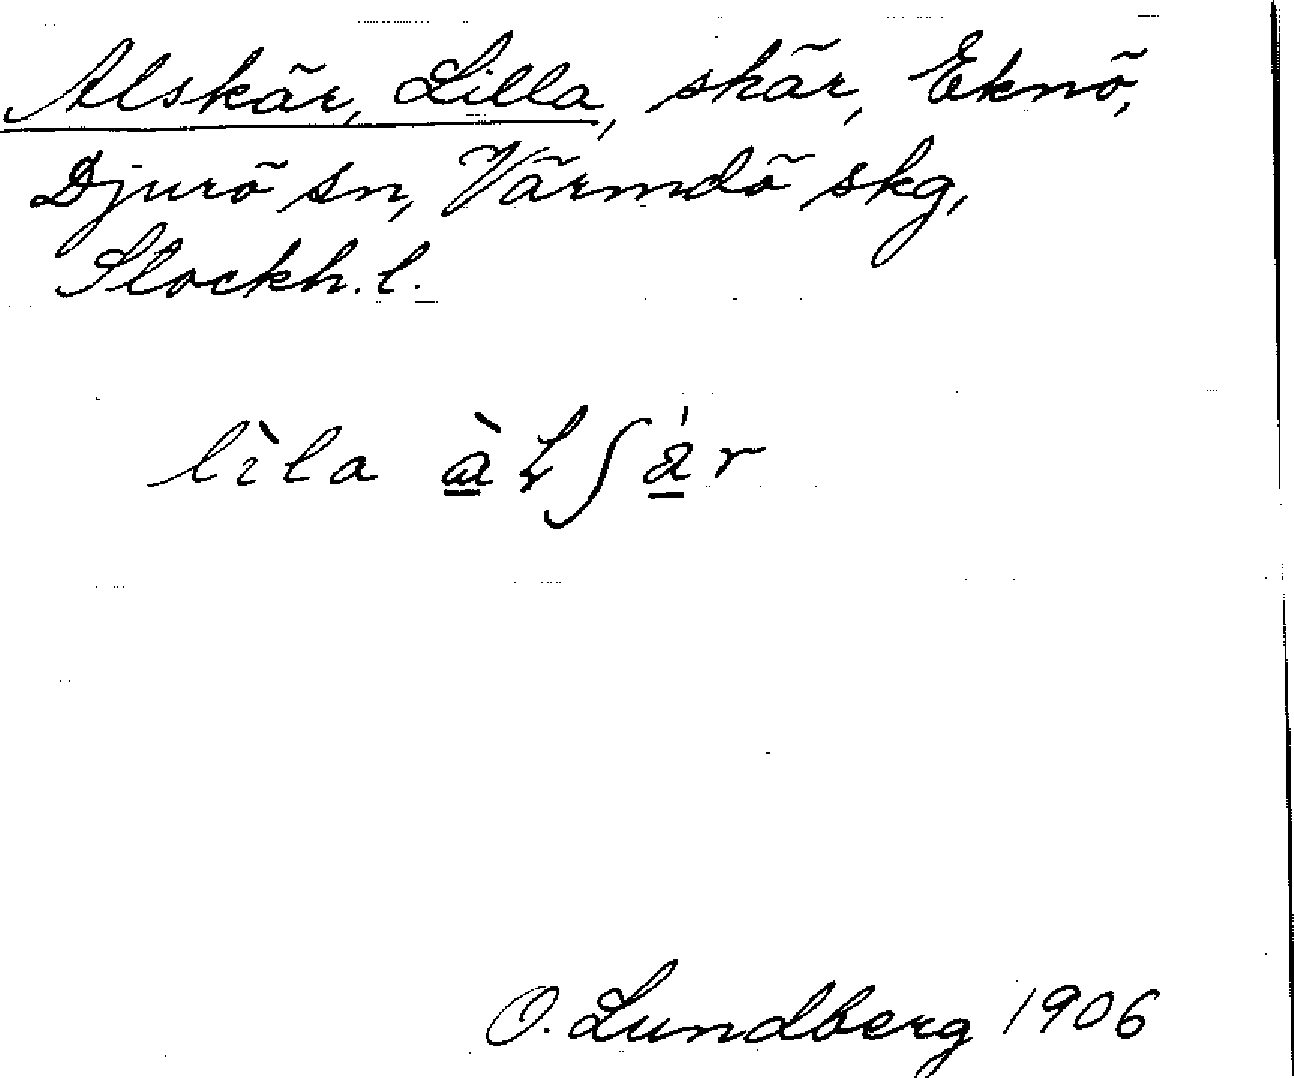 Alskär, Lilla, skär, Eknö,
Djurö sn, Värmdö skg,
Stockh. l.
O. Lundberg 1906